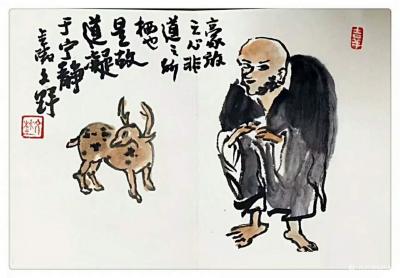 豪放
之心非
道之所
栖也
是故
道凝
于宁静